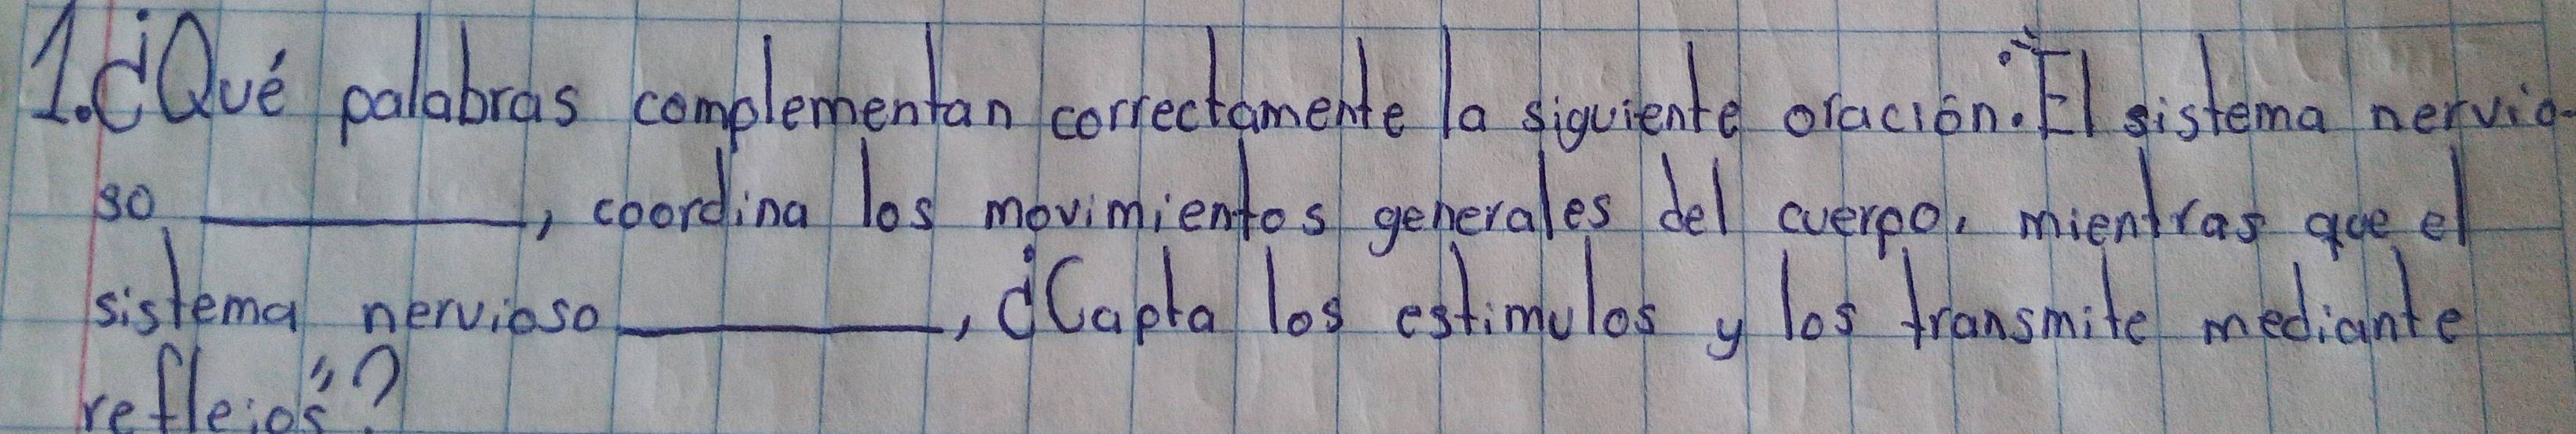 1. ¿Qué palabras complementan correctamente la siguiente oración. "El sistema nervio-
so __________, coordina los movimientos generales del cuerpo, mientras que el
sistema nervioso __________, ¿Capta los estimulos y los transmite mediante
reflejos"?